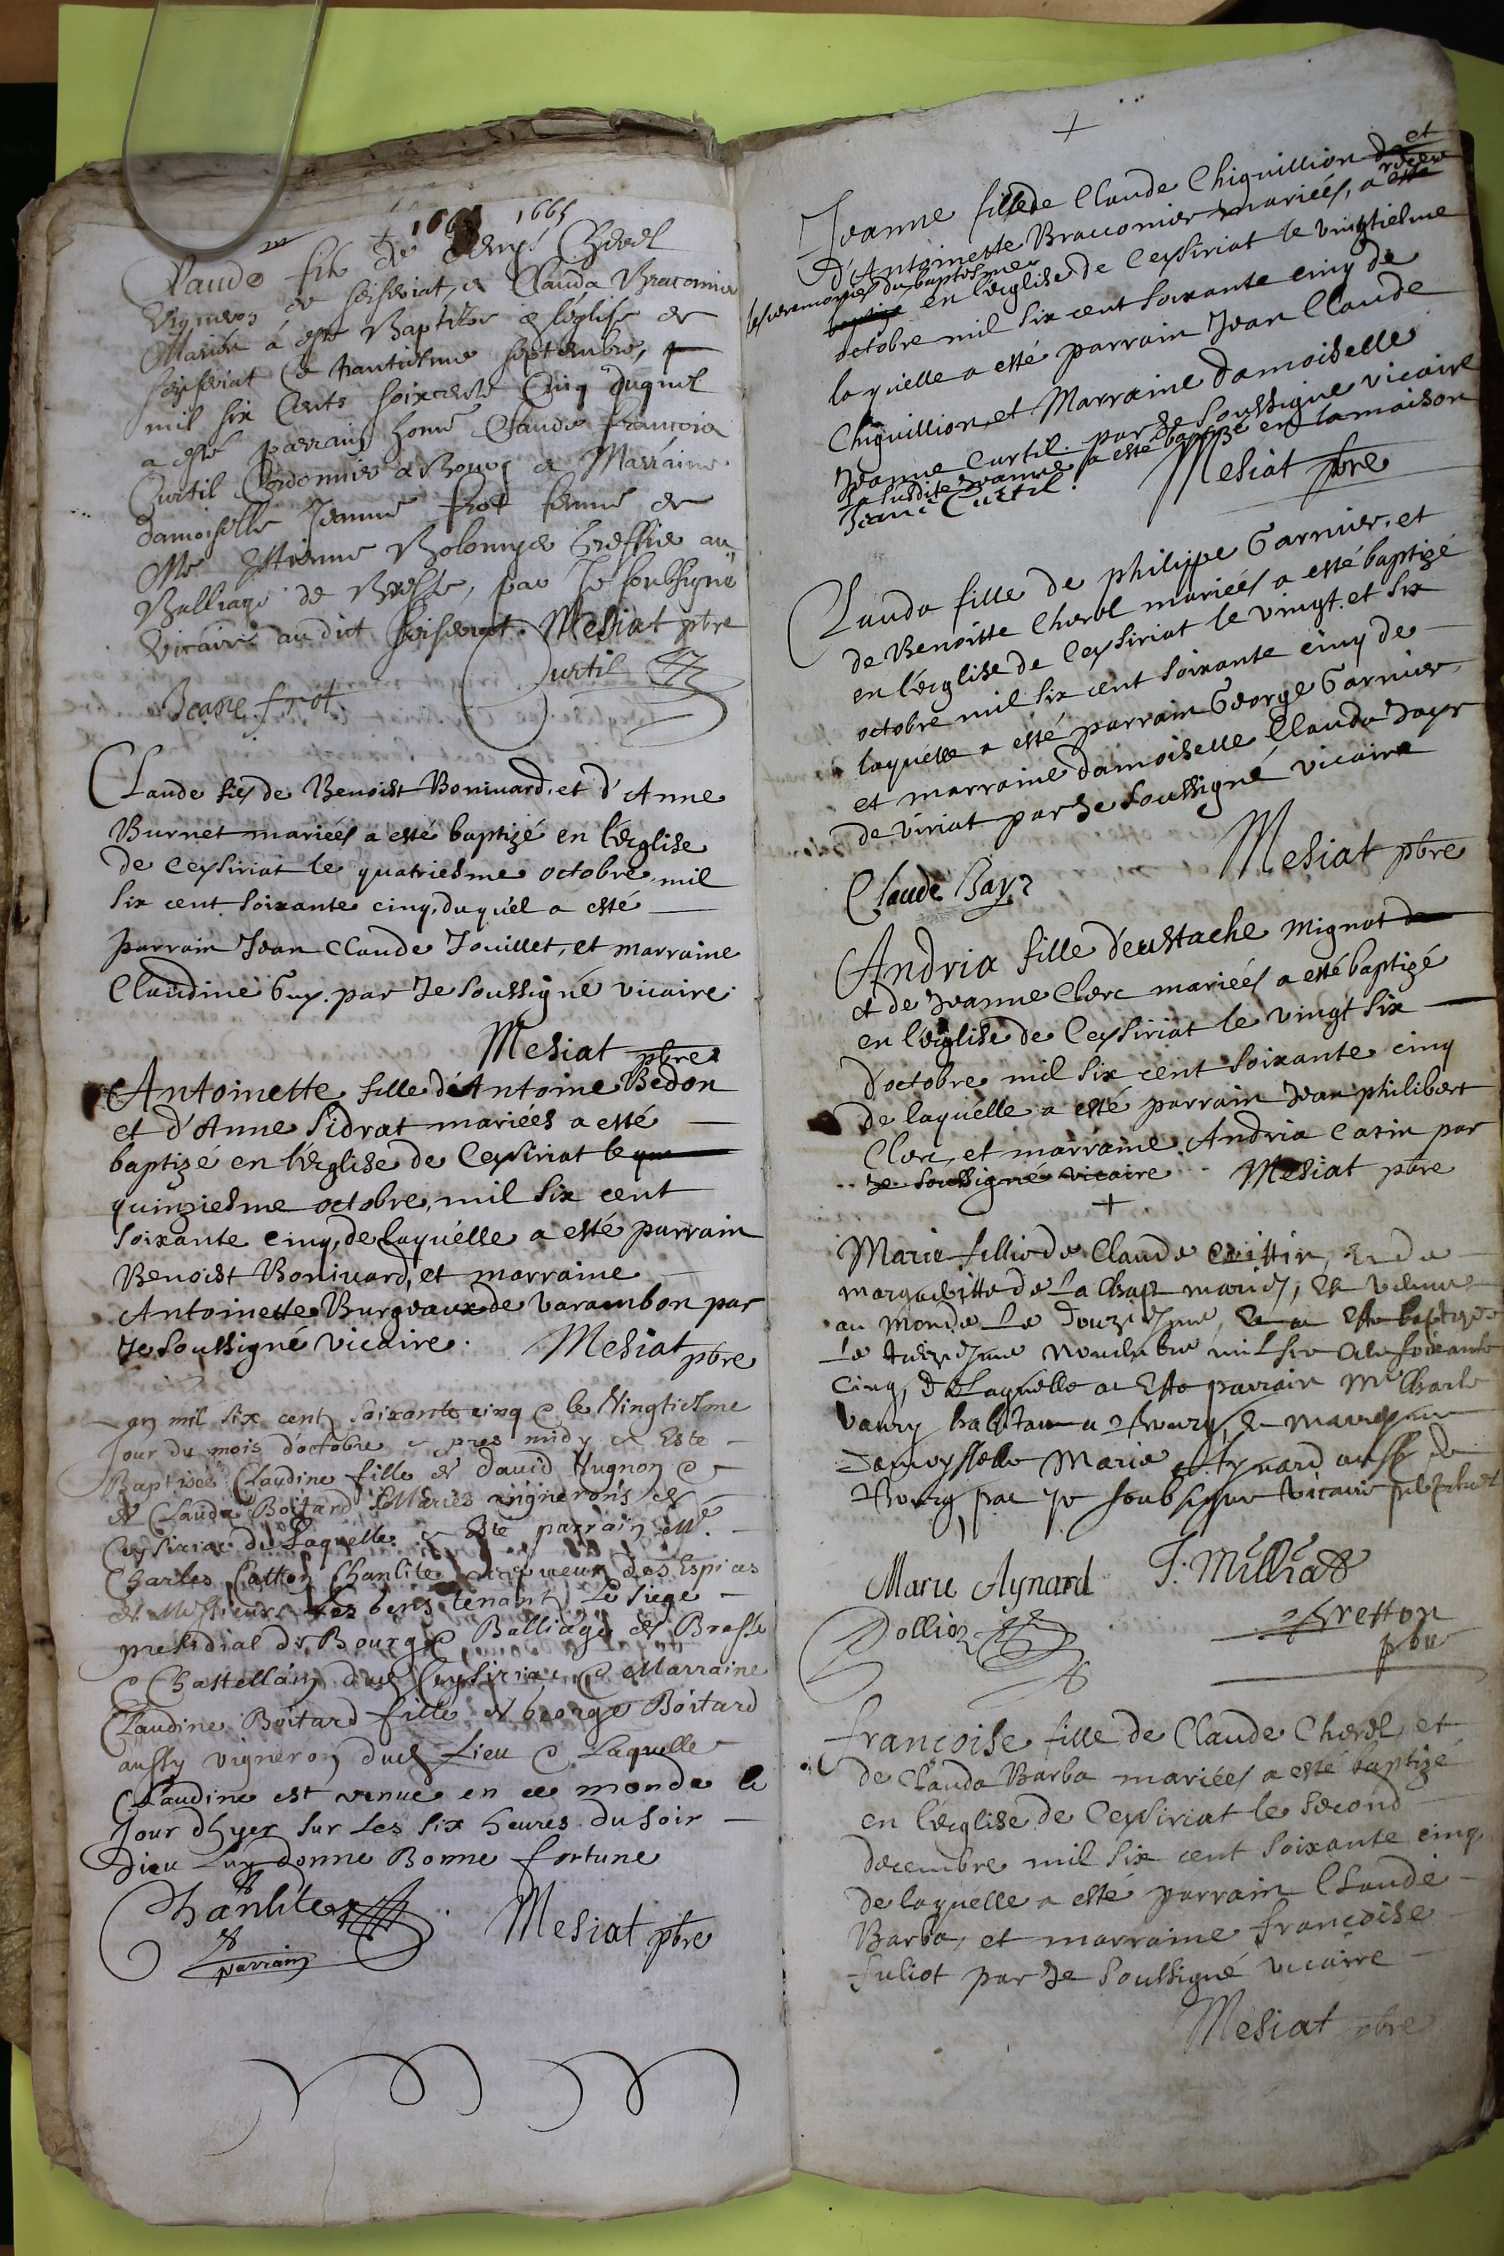 1665 1665
Claude fils de Denys Cherel
Vigneron de seiseriat, et Clauda Braconnier
Mariés a esté Baptisé en léglise de
seiseriat le trantiesme septembre,
mil six cents soixcente Cinq duquel
a esté parrain honn Claude françois
Curtil Cordonnier a Bourg et Marraine
damoiselle Jeanne frot femme de
Me Estienne Bolomyer Greffier au
Balliage de Bresse, par Je soubsigné
Vicaire audict seiseriat. Mesiat pbre
Curtil
Jeane frot
Claude fils de Benoist Bonivard, et d'Anne
Burnet mariéés a esté baptizé en l'ēglise
de Ceysiriat le quatriesme octobre, mil
six cent soixante cinq, duquel a esté
parrain Jean Claude Jouillet, et marraine
Claudine Guy. par Je soussigné vicaire.
Mesiat pbre
Antoinette fille d'Antoine Bedon
et d'Anne Sidrat mariées a esté
baptizé en l'ēglise de Ceysiriat le
quinziesme octobre, mil six cent
soixante cinq, de laquélle a esté parrain
Benoist Bonivard, et marraine
Antoinette Burgeaux de varambon par
Je soussigné vicaire. Mesiat pbre
an mil six centz soixante cinq & le Vingtiesme
Jour du mois d'octobre a pres midy a Este
Baptisée Claudine fille de david Hugnon &
de Clauda Boitard Mariés vignerons de
Ceysiriac de Laquelle a Este parrain Me.
Charles Catton Chanlite receveur des Espices
de Messieurs Les gens tenantz Le siege
presidial de Bourg & Balliage de Bresse
& Chastellain dud Ceysiriac & Marraine
Claudine Boitard fille de George Boitard
aussy vigneron dud Lieu & Laquelle
Claudine est venue en ce monde le
Jour dhyer sur Les six heures du soir
dieu Luy donne Bonne fortune
Chanlite Mesiat pbre
parrain
Jeanne fille de Claude Chiquillion et
d'Antoinette Braconnier mariéés, a receu
les ceremonies du baptesme en l'église de Ceysiriat le vingtiesme
octobre mil six cent soixante cinq de
laquelle a esté parrain Jean Claude
Chiquillion, et Marraine damoiselle
Jeanne Curtil. par Je soussigné vicaire
la susdite Jeanne a esté baptizé en la maison
Jeane Curtil. Mesiat pbre
Clauda fille de philippe Garnier, et
de Benoitte Cherel mariéés a esté baptizé
en l'ēglise de Ceysiriat le vingt et six
octobre mil six cent soixante cinq de
laquélle a esté parrain George Garnier,
et marraine damoiselle Clauda Jayr
de viriat par Je soussigné vicaire
Mesiat pbre
Claude Jayr
Andria fille d'eustache Mignot
et de Jeanne Clerc mariéés a esté baptizé
en l'ēglise de Ceysiriat le vingt six
d'octobre mil six cent soixante cinq
de laquélle a esté parrain Jean philibert
Clerc, et marraine Andria Catin par
Je soussigné vicaire. Mesiat pbre
Marie fillie de Claude Cuittin, et de
margueritte de La Chap mariez, est venue
au monde Le Douziesme, et a Este baptisée
Le treiziesme Novembre mil six cens soixante
cinq, de Laquelle a Este parrain Me Charle
vaury habitan a Bourg, et marraine
Damoyselle Marie Aynard aussy de
Bourg, par Je soubsigné Vicaire
Marie Aynard J. Milliad
Dollion Bretton
pbre
françoise fille de Claude Cherel et
de Clauda Barba mariéés a esté baptizé
en l'ēglise de Ceysiriat le second
decembre mil six cent soixante cinq
de laquelle a esté parrain Claude
Barba, et marraine françoise
Juliot par Je soussigné vicaire
Mesiat pbre